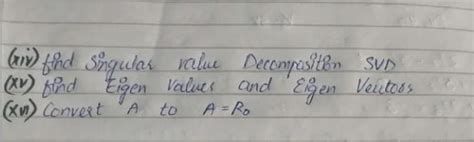 (xiv) find Singular value Decomposition SVD
(xv) find Eigen Values and Eigen Vectors
(xvi) Convert A to A = R₀